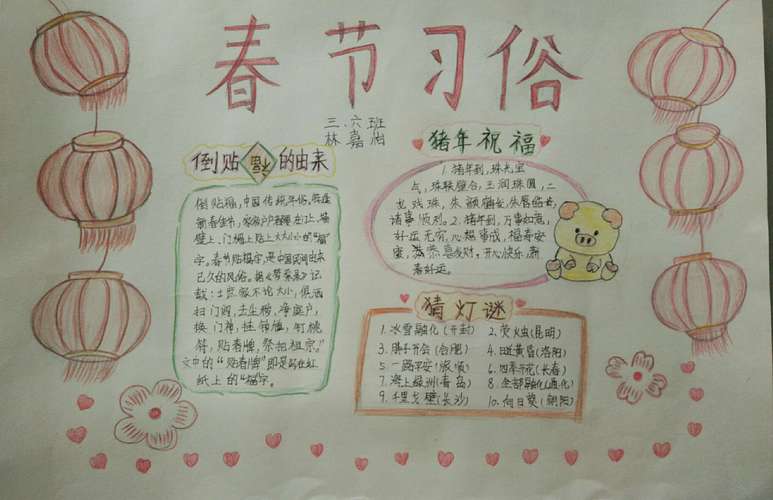 春节习俗
三、六班
林嘉怡
倒贴福的由来
倒贴福,中国传统年俗,每逢
新春佳节,家家户户都要在
壁上、门楣上贴上大大小小的"福"
字。春节贴福字,是中国民间由来
已久的风俗。据《梦粱录》记
载:士庶家不论大小,俱洒
扫门闾,去尘秽,净庭户,
换门神,挂钟馗,钉桃
符,贴春牌,祭祀祖宗。"
文中的"贴春牌"即是写在红
纸上的"福"字。
猪年祝福
1.猪年到,珠光宝
气,珠联璧合,玉润珠圆,二
龙戏珠,
诸事顺利。2.猪年到,万事如意,
好运无穷,心想事成,福寿安
恭喜发财,开心快乐,新
春好运。
猜灯谜
1.冰雪融化(开封) 2.荧火虫(昆明)
3.胖子开会(合肥) 4.日近黄昏(洛阳)
5.一路平安(旅顺) 6.四季开花(长春)
7.海上绿洲(青岛) 8.全部融化(通化)
9.千里戈壁(长沙) 10.向日葵(朝阳)